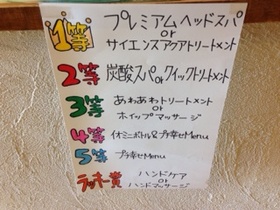 1等 プレミアムヘッドスパ
or
サイエンスアクアトリートメント
2等 炭酸スパorクイックトリートメント
3等 あわあわトリートメント
or
ホイップマッサージ
4等 ミニボトル&プチ幸せMenu
5等 プチ幸せMenu
ラッキー賞 ハンドケア
or
ハンドマッサージ